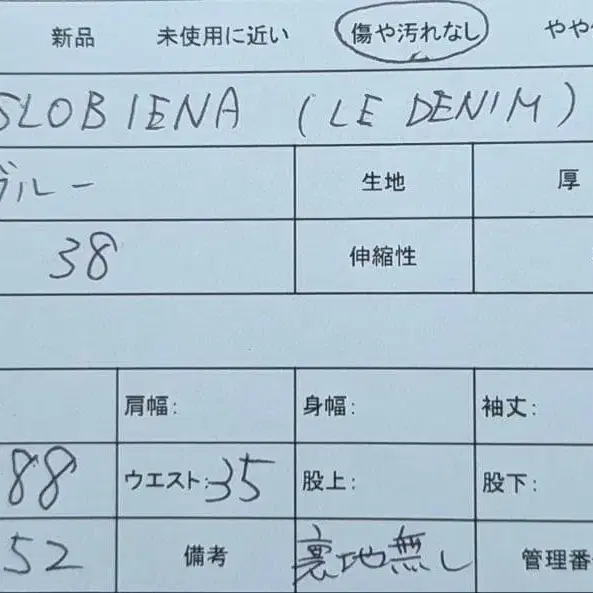 新品 未使用に近い 傷や汚れなし やや
SLOBIENA (LE DENIM)
ブルー 生地 厚
38 伸縮性
肩幅: 身幅: 袖丈:
88 ウエスト:35 股上: 股下:
52 備考 裏地無し 管理番